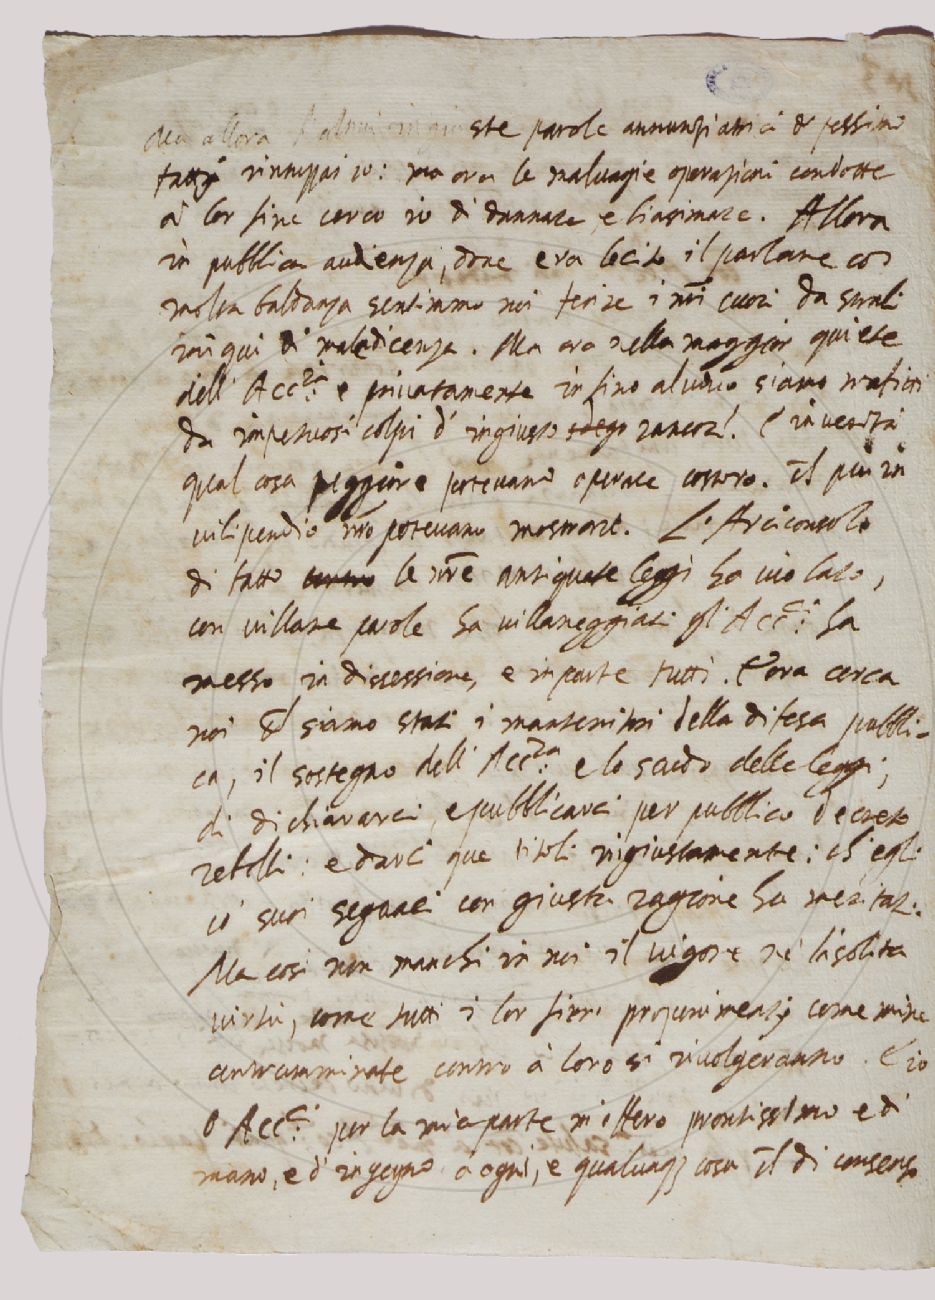 Ma allora l'altrui ingiuste parole annunziatrici di pessimi
fatti rinuppai io: ma ora le malvagie operazioni condotte
à lor fine cerco io di dannare, e biasimare. Allora
in pubblica audienza, dove era lecito il parlare con
molta baldanza sentimmo noi ferire i nri cuori da strali
iniqui di maledicenza. Ma ora nella maggior quiete
dell' Acc.za e privatamente infino al vivo siamo trafitti
da impetuosi colpi d' ingiusto rancor! E in verità
qual cosa peggiore potevano operare costoro. Il più in
vilipendio nro potevano mostrare. L'Arciconsolo
di fatto le nre antiquate leggi ha violato,
con villane parole ha villaneggiati gl' Acc.ci ha
messo in dissessione, e in parte tutti. E ora cerca
noi siamo stati i mantenitori della difesa pubbli-
ca, il sostegno dell' Acc.za e lo scudo delle leggi;
di dichiararci, e pubblicarci per pubblico decreto
rebelli: e darci que titoli ingiustamente: ch'egli
co' suoi seguaci con giusta ragione ha meritati.
Ma così non manchi in noi il vigore nè la solita
virtù, come tutti i lor fieri proponimenti come mine
contramminate contro à loro si rivolgeranno. E io
O Acc.ci per la mia parte m'offero prontissimo e di
mano, e d' ingegno à ogni, e qualunq; cosa di consenso